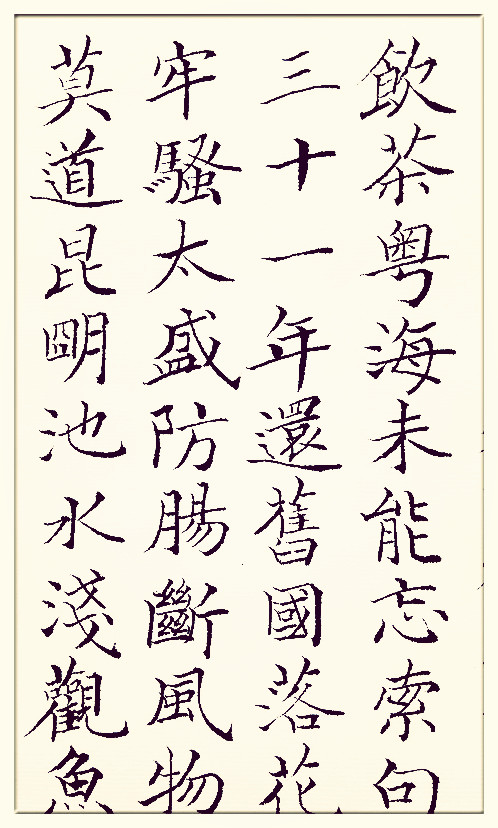 飲茶粤海未能忘索句
三十一年還舊國落花
牢騷太盛防腸斷風物
莫道昆明池水淺觀魚